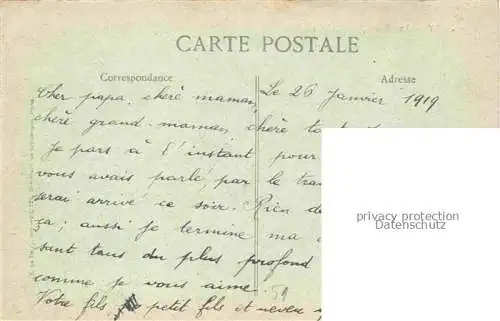 CARTE POSTALE
Correspondance
Adresse
Le 26 Janvier 1919
Cher papa, chère maman,
chère grand-maman, chère
Je pars à l'instant pour
vous avais parlé, par le
serai arrivé ce soir. Rien de
ça; aussi je termine ma
sant tous du plus profond
comme je vous aime.
Votre fils, petit fils et neveu
59
privacy protection
AnsichtskartenHandel (AKH)